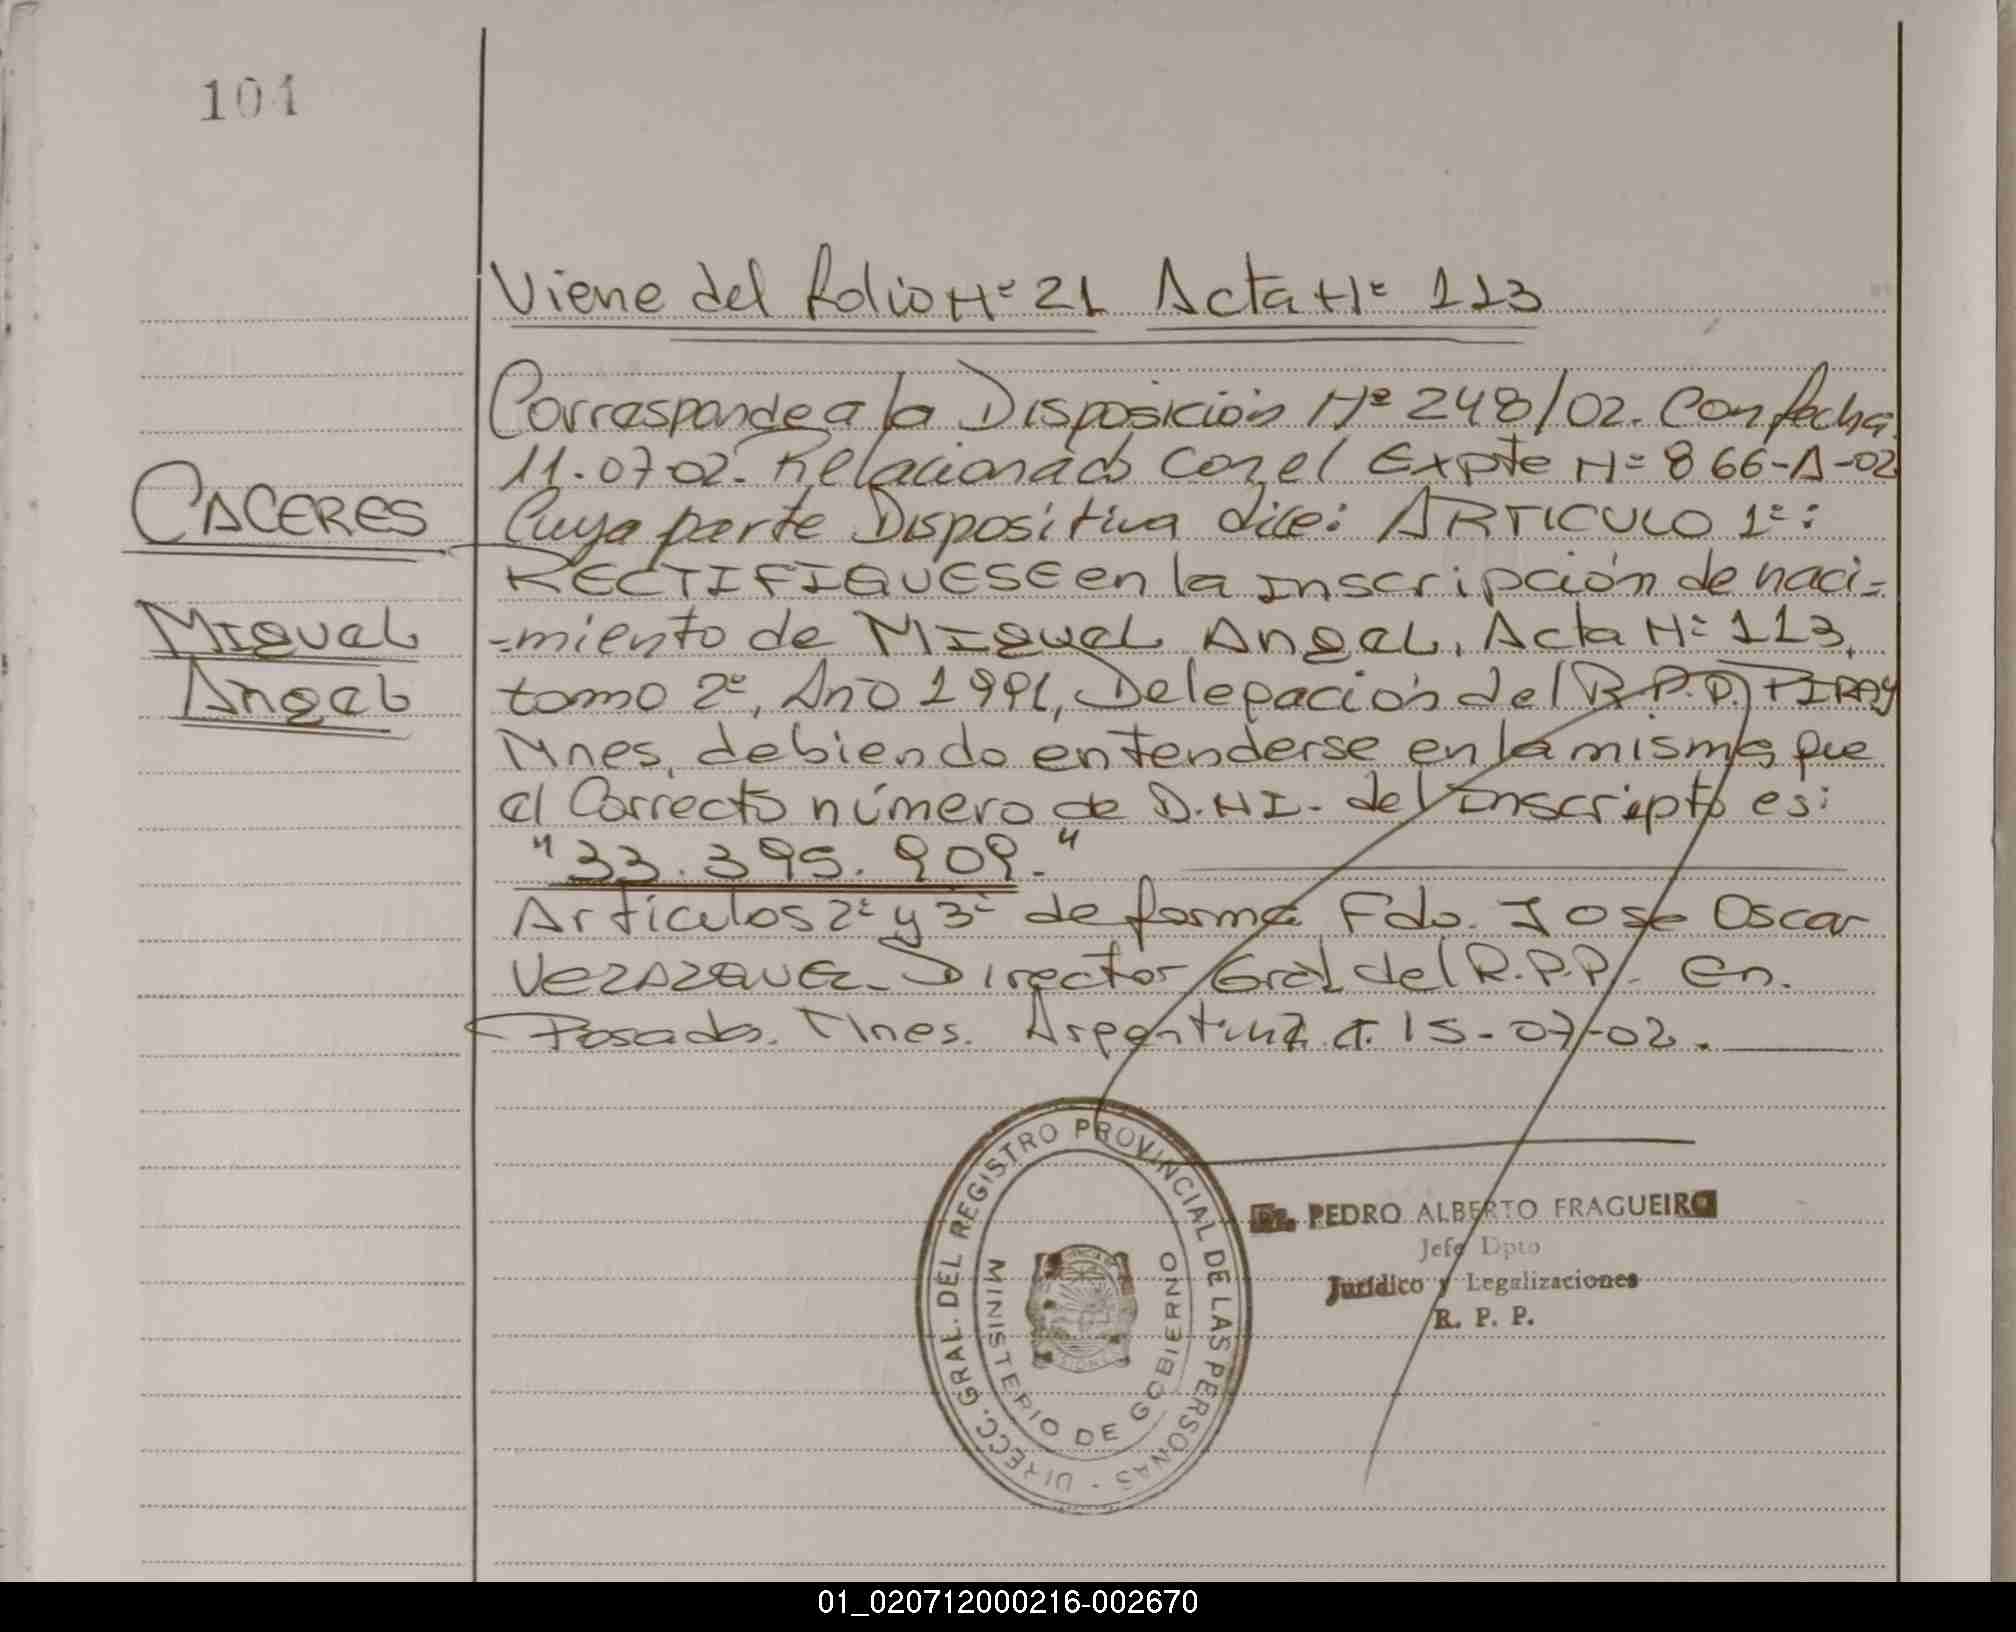 104
Viene del folio Nº 21 Acta Nº 113
Corresponde a la Disposición Nº 248/02. Con fecha
11.07.02. Relacionado con el Expte Nº 866-A-02
CACERES
Cuya parte Dispositiva dice: ARTICULO 1º:
RECTIFIQUESE en la inscripción de naci=
Miguel
=miento de Miguel Angel, Acta Nº 113,
Angel
tomo 2º, Año 1991, Delegación del R.P.P. PIRAY
Mnes, debiendo entenderse en la misma que
el Correcto número de D.N.I. del inscripto es:
"33.395.909."
Articulos 2º y 3º de forma Fdo. Jose Oscar
Director Gral del R.P.P. en
Posadas. Mnes. Argentina a 15-07-02.
DIRECC. GRAL. DEL REGISTRO PROVINCIAL DE LAS PERSONAS -
MINISTERIO DE GOBIERNO
Dr. PEDRO ALBERTO FRAGUEIRO
Jefe Dpto
Jurídico y Legalizaciones
R. P. P.
01_020712000216-002670